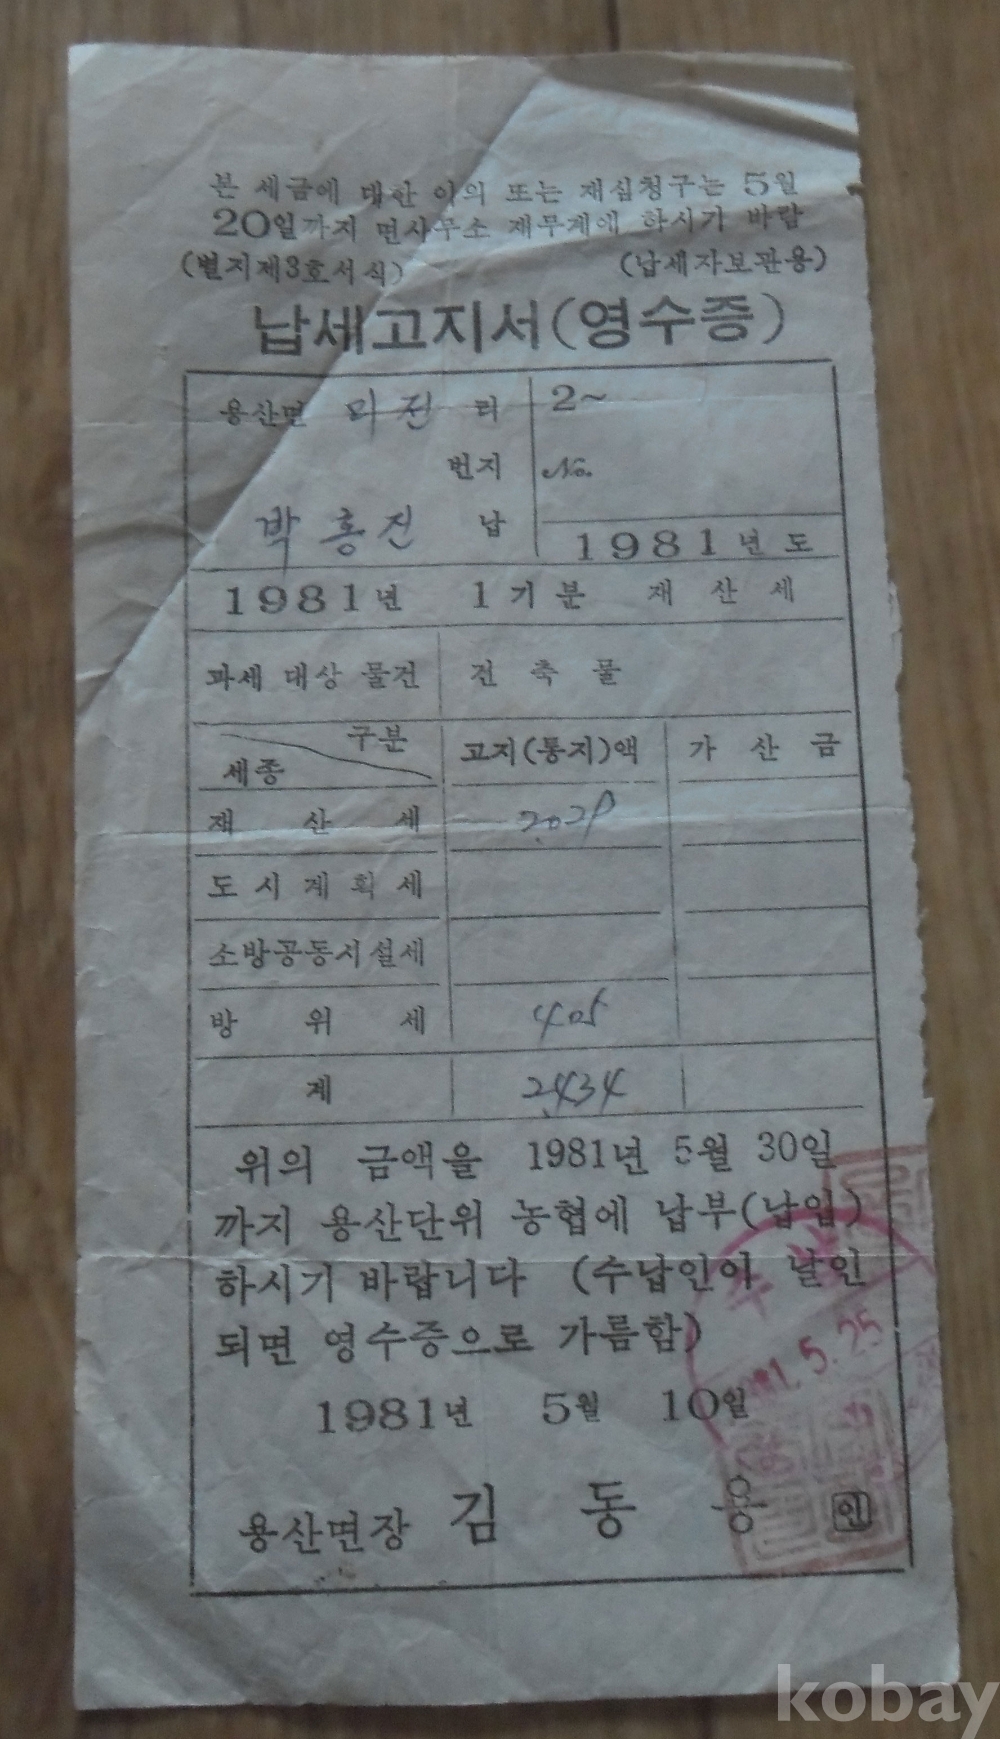 본 세금에 대한 이의 또는 재심청구는 5월
20일까지 면사무소 재무계에 하시기 바람
(별지제3호서식) (납세자보관용)
납세고지서(영수증)
용산면 미전 리 2~
번지 No.
박홍진 납
1981년도
1981년 1기분 재산세
과세 대상 물건 건축물
구분
세종 고지(통지)액 가산금
재산세 2.029
도시계획세
소방공동시설세
방위세 405
계 2,434
위의 금액을 1981년 5월 30일
까지 용산단위 농협에 납부(납입)
하시기 바랍니다 (수납인이 날인
되면 영수증으로 가름함)
1981년 5월 10일
용산면장 김동용 인
5. 25
kobay